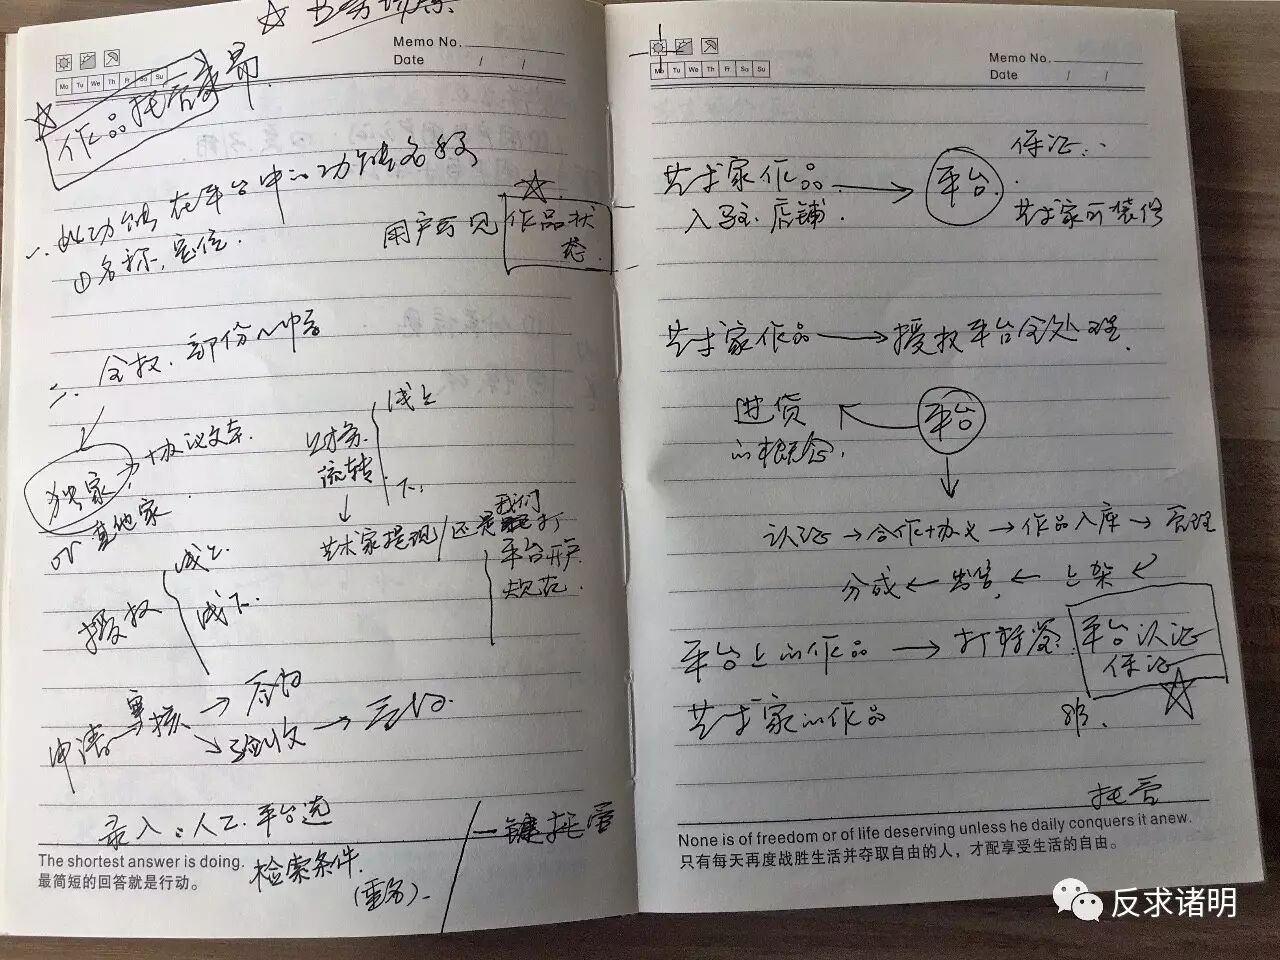 业务场景
Memo No.
Date / /
Mo Tu We Th Fr Sa Su
作品托管交易
一、此功能在平台中的功能名称
①名称,定位.
用户可见 作品状态.
二、全权、部份
独家 → 协议文本.
or 其他家
财务流转
线上
下:
艺术家提现/还是我们打
平台开户规范.
授权
线上.
线下.
申请→审核
→ 验收 →
录入:人工.平台选
检索条件.
(重名).
一键托管
The shortest answer is doing.
最简短的回答就是行动。
Memo No.
Date / /
Mo Tu We Th Fr Sa Su
艺术家作品 → 平台.
入驻.店铺.
保证:
艺术家可装修
艺术家作品 → 授权平台全处理.
进货 ← 平台
的概念.
认证 → 合作协议 → 作品入库 → 管理
分成 ← 出售 ← 上架
平台上的作品 → 打标签: 平台认证
保证
艺术家的作品
托管
None is of freedom or of life deserving unless he daily conquers it anew.
只有每天再度战胜生活并夺取自由的人，才配享受生活的自由。
反求诸明